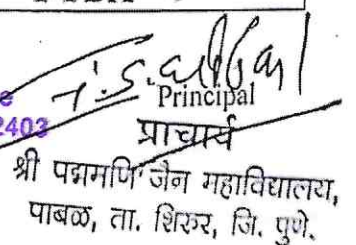 Principal
प्राचार्य
श्री पद्ममणि जैन महाविद्यालय,
पाबळ, ता. शिरुर, जि. पुणे.
2403